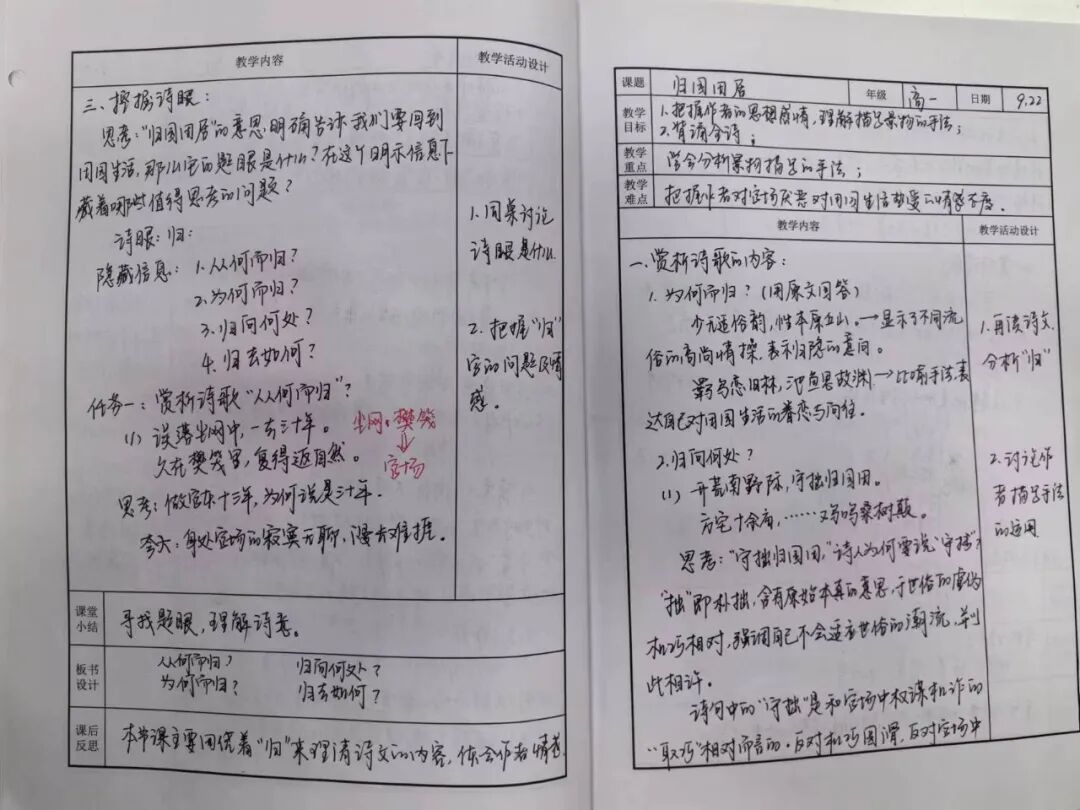 教学内容 教学活动设计
三、掌握诗眼：
思考："归园田居"的意思明确告诉我们要回到
田园生活，那么它的题眼是什么？在这个明示信息下
藏着哪些值得思考的问题？
诗眼：归：
隐藏信息：1.从何而归？
2.为何而归？
3.归向何处？
4.归去如何？
任务一：赏析诗歌"从何而归"？
(1) 误落尘网中，一去三十年。
久在樊笼里，复得返自然。
尘网、樊笼
官场
思考：做官十三年，为何说是三十年.
夸大：身处官场的寂寞无聊，漫长难捱。
1.同桌讨论
诗眼是什么.
2.把握"归"
字的问题及情
感.
课堂
小结
寻找题眼，理解诗意。
板书
设计
从何而归？ 归向何处？
为何而归？ 归去如何？
课后
反思
本节课主要围绕着"归"来理清诗文的内容，体会作者情感
课题 归园田居 年级 高一 日期 9.22
教学
目标
1.把握作者的思想感情，理解描写景物的手法；
2.背诵全诗；
教学
重点
学会分析景物描写的手法；
教学
难点
把握作者对官场厌恶对田园生活热爱的情感态度.
教学内容 教学活动设计
一、赏析诗歌的内容：
1.为何而归？(用原文回答)
少无适俗韵，性本爱丘山。→显示了不同流
俗的高尚情操，表示归隐的意向。
羁鸟恋旧林，池鱼思故渊。→比喻手法，表
达自己对田园生活的眷恋与向往.
2.归向何处？
(1) 开荒南野际，守拙归园田。
方宅十余亩，……鸡鸣桑树颠。
思考："守拙归园田，"诗人为何要说"守拙"？
"拙"即朴拙，含有原始本真的意思，于世俗的虚伪
机巧相对，强调自己不会适应世俗的潮流，并以
此相许。
诗句中的"守拙"是和官场中权谋机诈的
"取巧"相对而言的.反对机巧圆滑，反对官场中
1.再读诗文
分析"归"
2.讨论作
者描写手法
的运用